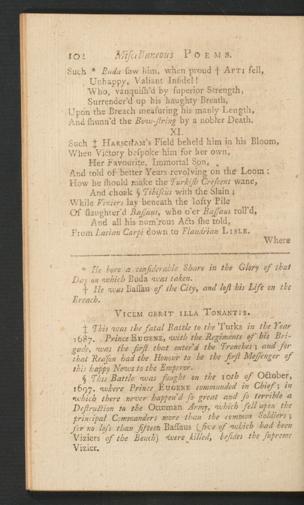 102 Miscellaneous POEMS.
Such * Buda saw him, when proud † APTI fell,
Unhappy, Valiant Infidel!
Who, vanquish'd by superior Strength,
Surrender'd up his haughty Breath,
Upon the Breach measuring his manly Length,
And shunn'd the Bow-string by a nobler Death.
XI.
Such ‡ HARSCHAM's Field beheld him in his Bloom,
When Victory bespoke him for her own,
Her Favourite, Immortal Son,
And told of better Years revolving on the Loom:
How he should make the Turkish Crescent wane,
And choak § Tibiscus with the Slain;
While Viziers lay beneath the lofty Pile
Of slaughter'd Bassaus, who o'er Bassaus roll'd,
And all his num'rous Acts she told,
From Latian Carpi down to Flandrian LISLE.
Where
* He bore a considerable Share in the Glory of that
Day on which Buda was taken.
† He was Bassau of the City, and lost his Life on the
Breach.
VICEM GERIT ILLA TONANTIS.
‡ This was the fatal Battle to the Turks in the Year
1687. Prince EUGENE, with the Regiments of his Bri-
gade, was the first that enter'd the Trenches; and for
that Reason had the Honour to be the first Messenger of
this happy News to the Emperor.
§ This Battle was fought on the 10th of October,
1697. where Prince EUGENE commanded in Chief; in
which there never happen'd so great and so terrible a
Destruction to the Ottoman Army, which fell upon the
principal Commanders more than the common Soldiers;
for no less than fifteen Bassaus (five of which had been
Viziers of the Bench) were killed, besides the supreme
Vizier.